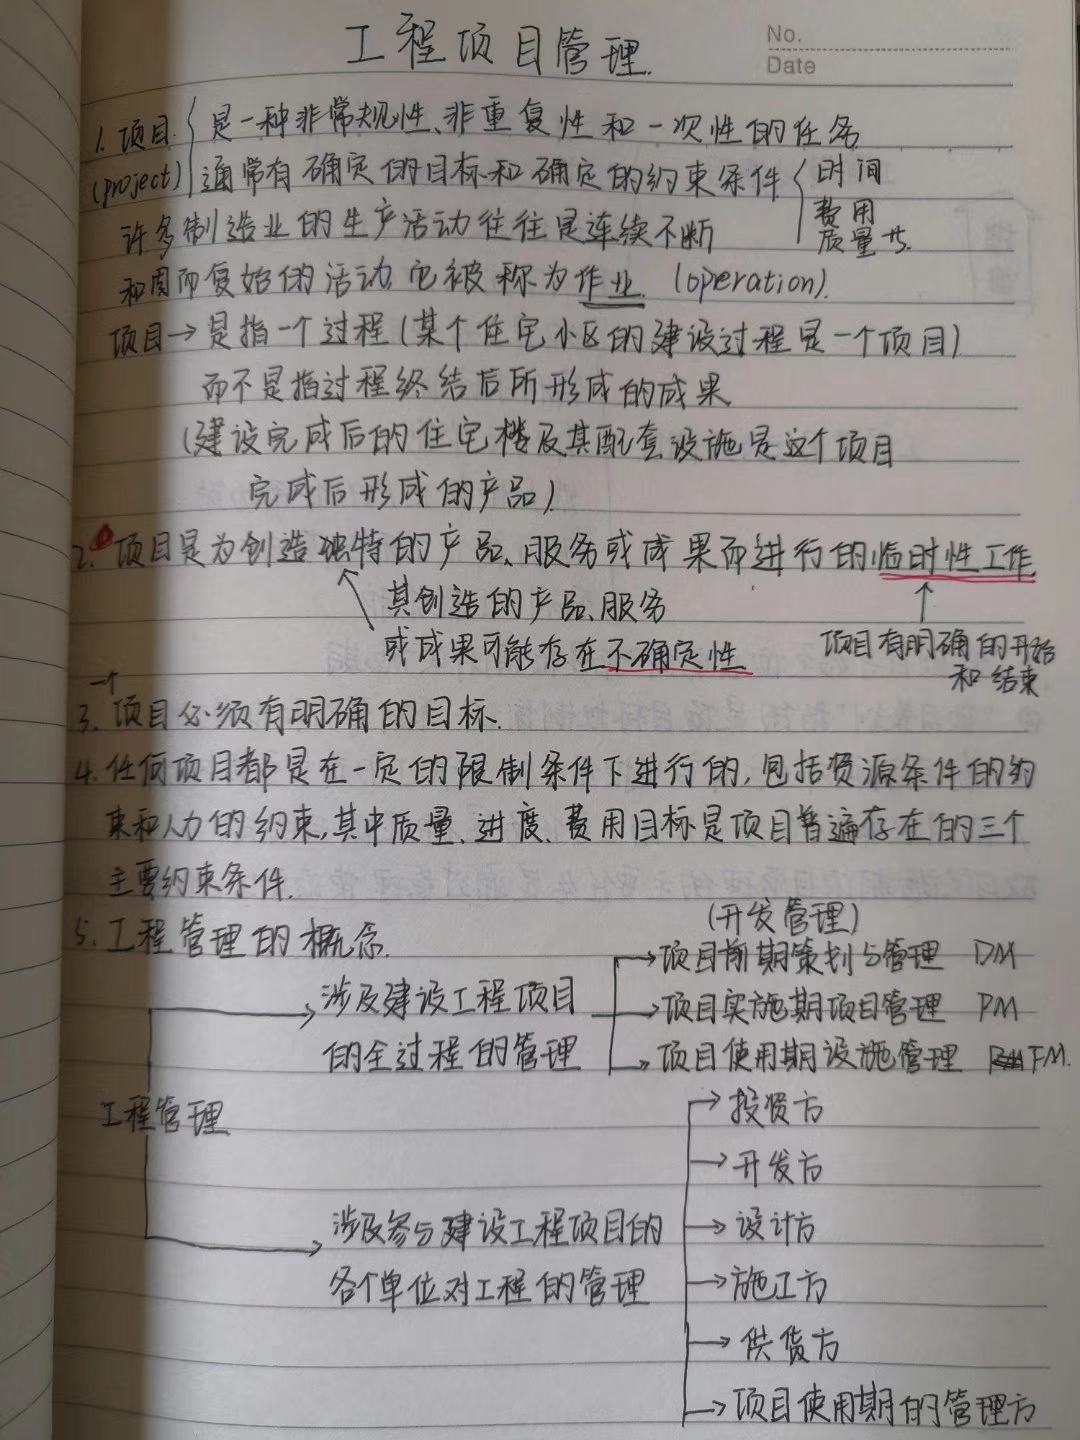 工程项目管理.
No.
Date
1. 项目 { 是一种非常规性、非重复性和一次性的任务
(project) 通常有确定的目标和确定的约束条件 { 时间
费用
质量
许多制造业的生产活动往往是连续不断
和周而复始的活动,它被称为作业 (operation).
项目→是指一个过程(某个住宅小区的建设过程是一个项目)
而不是指过程终结后所形成的成果
(建设完成后的住宅楼及其配套设施是这个项目
完成后形成的产品)
2. 项目是为创造独特的产品、服务或成果而进行的临时性工作
其创造的产品、服务
或成果可能存在不确定性
项目有明确的开始
和结束
3. 项目必须有明确的目标.
4. 任何项目都是在一定的限制条件下进行的,包括资源条件的约
束和人力的约束,其中质量、进度、费用目标是项目普遍存在的三个
主要约束条件.
5. 工程管理的概念.
(开发管理)
涉及建设工程项目
的全过程的管理
→项目前期策划与管理 DM
→项目实施期项目管理 PM
→项目使用期设施管理 FM.
工程管理
涉及参与建设工程项目的
各个单位对工程的管理
→投资方
→开发方
→设计方
→施工方
→供货方
→项目使用期的管理方